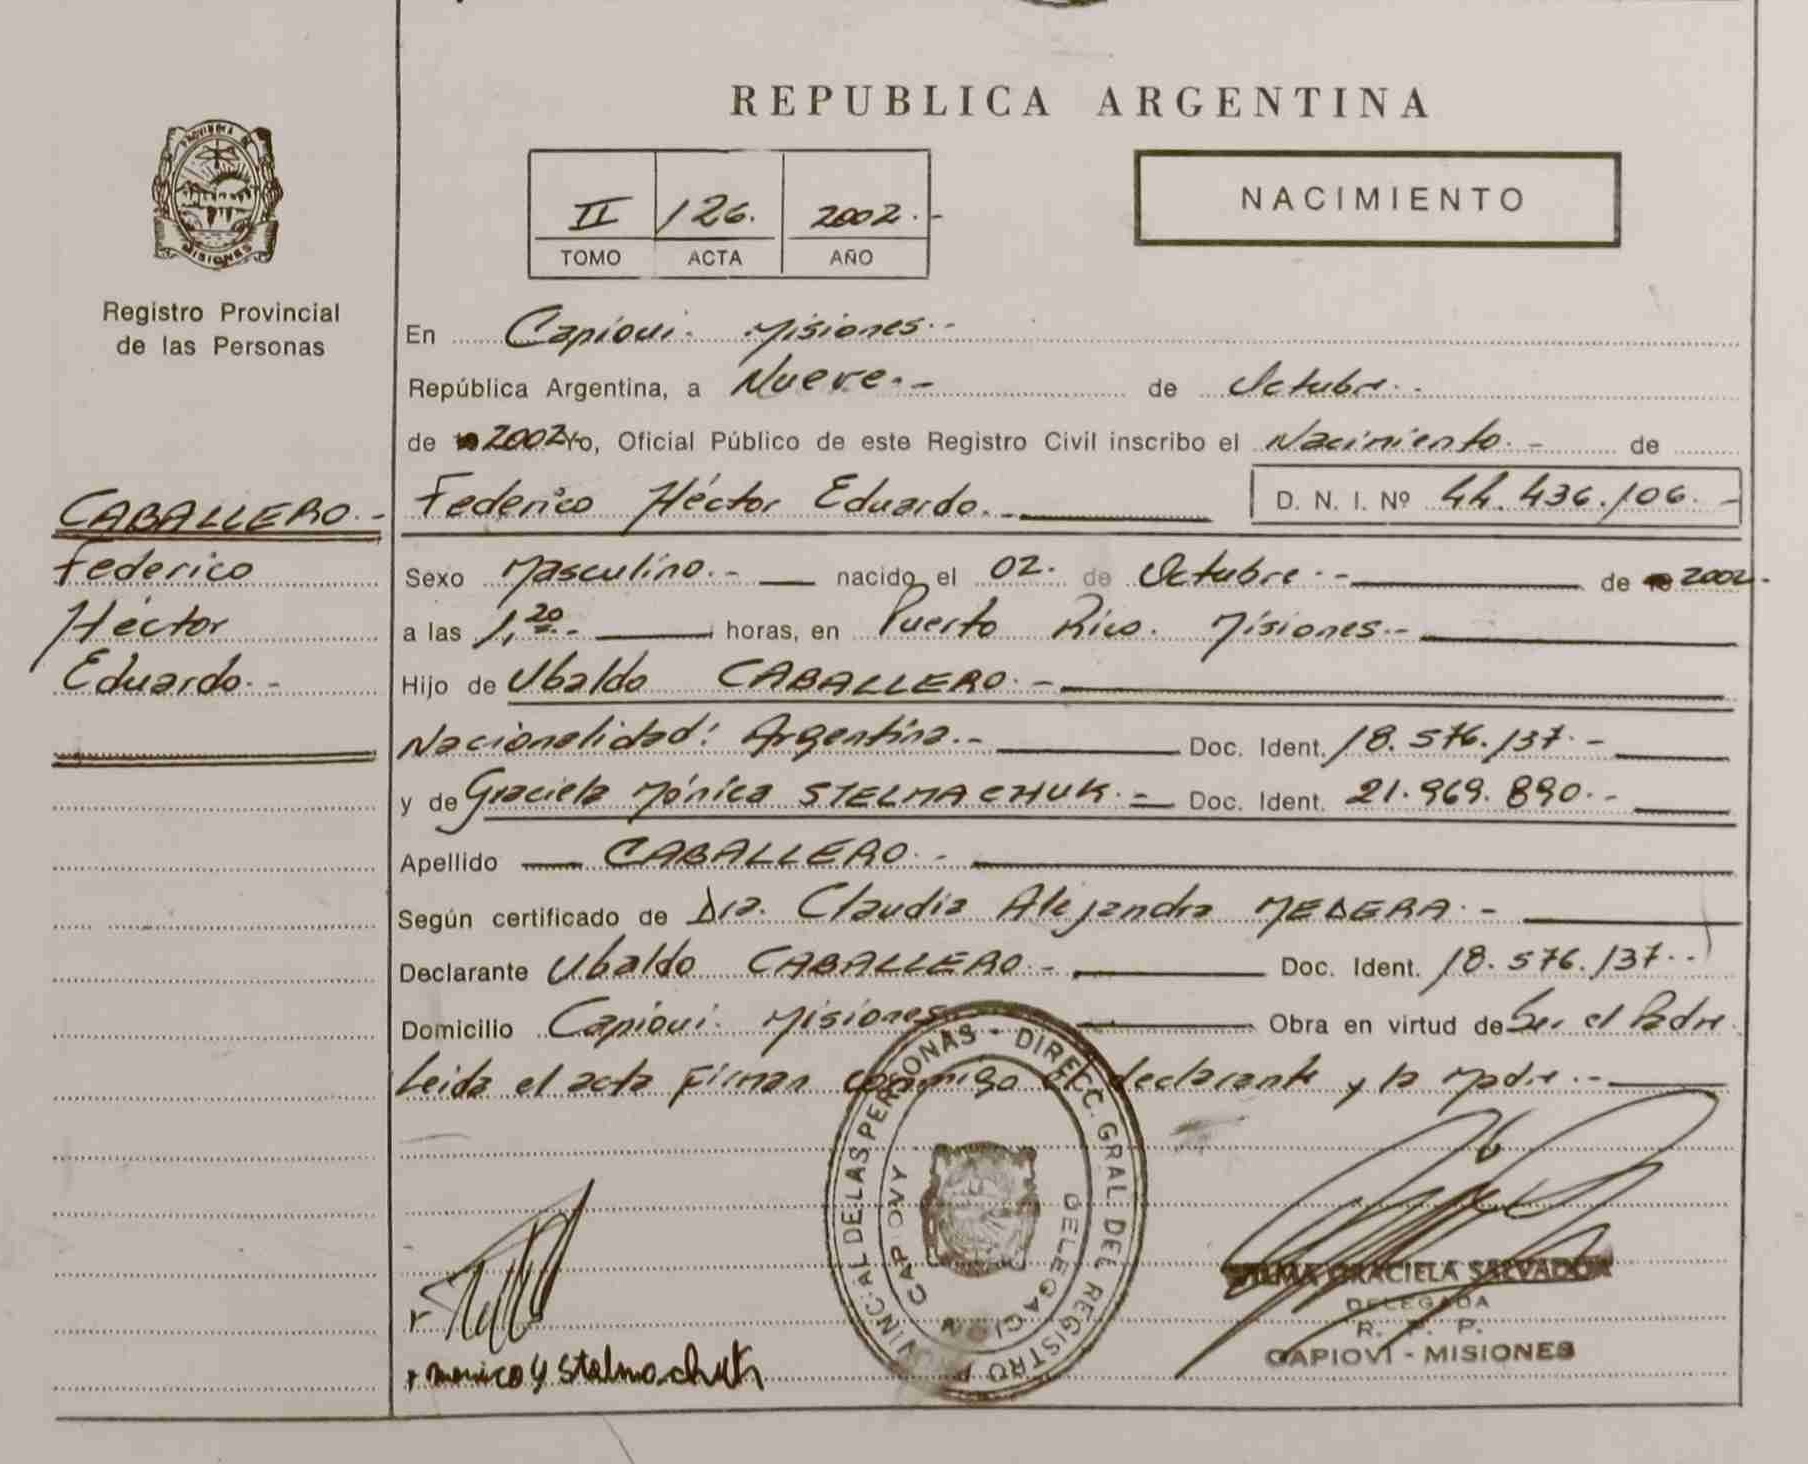 REPUBLICA ARGENTINA
II 126. 2002.-
TOMO ACTA AÑO
NACIMIENTO
PROVINCIA DE
MISIONES
Registro Provincial
de las Personas
CABALLERO.-
Federico
Héctor
Eduardo.-
En Capioví. Misiones.-
República Argentina, a Nueve.- de Octubre.-
de 2002 Yo, Oficial Público de este Registro Civil inscribo el Nacimiento.- de
Federico Héctor Eduardo.- D. N. I. Nº 44.436.106.-
Sexo Masculino.- nacido el 02. de Octubre.- de 2002.-
a las 1,20.- horas, en Puerto Rico. Misiones.-
Hijo de Ubaldo CABALLERO.-
Nacionalidad: Argentina.- Doc. Ident. 18.576.137.-
y de Graciela Mónica STELMACHUK.- Doc. Ident. 21.969.890.-
Apellido CABALLERO.-
Según certificado de Dra. Claudia Alejandra MEDERA.-
Declarante Ubaldo CABALLERO.- Doc. Ident. 18.576.137.-
Domicilio Capioví. Misiones Obra en virtud de Ser el Padre.
Leida el acta Firman conmigo el declarante y la Madre.-
REGISTRO PROVINCIAL DE LAS PERSONAS - DIRECC. GRAL. DEL
DELEGACION CAPIOVY
GRACIELA SALVADOR
DELEGADA
R. P. P.
CAPIOVI - MISIONES
Stelmachuk